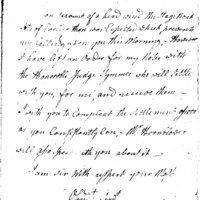 on account of a head wind the Stage Boat
sets of Earlier than was Expected which prevents
my Calling upon you this Morning - Therefore
I have left an Order for my Notes with
the Honorble Judge Symmes who will Settle
with you, for me, and receive them -
I wish you to Compleat the Settlement as soon
as you Consistently Can - Mr
will also speak with you about it -
I am Sir with respect your